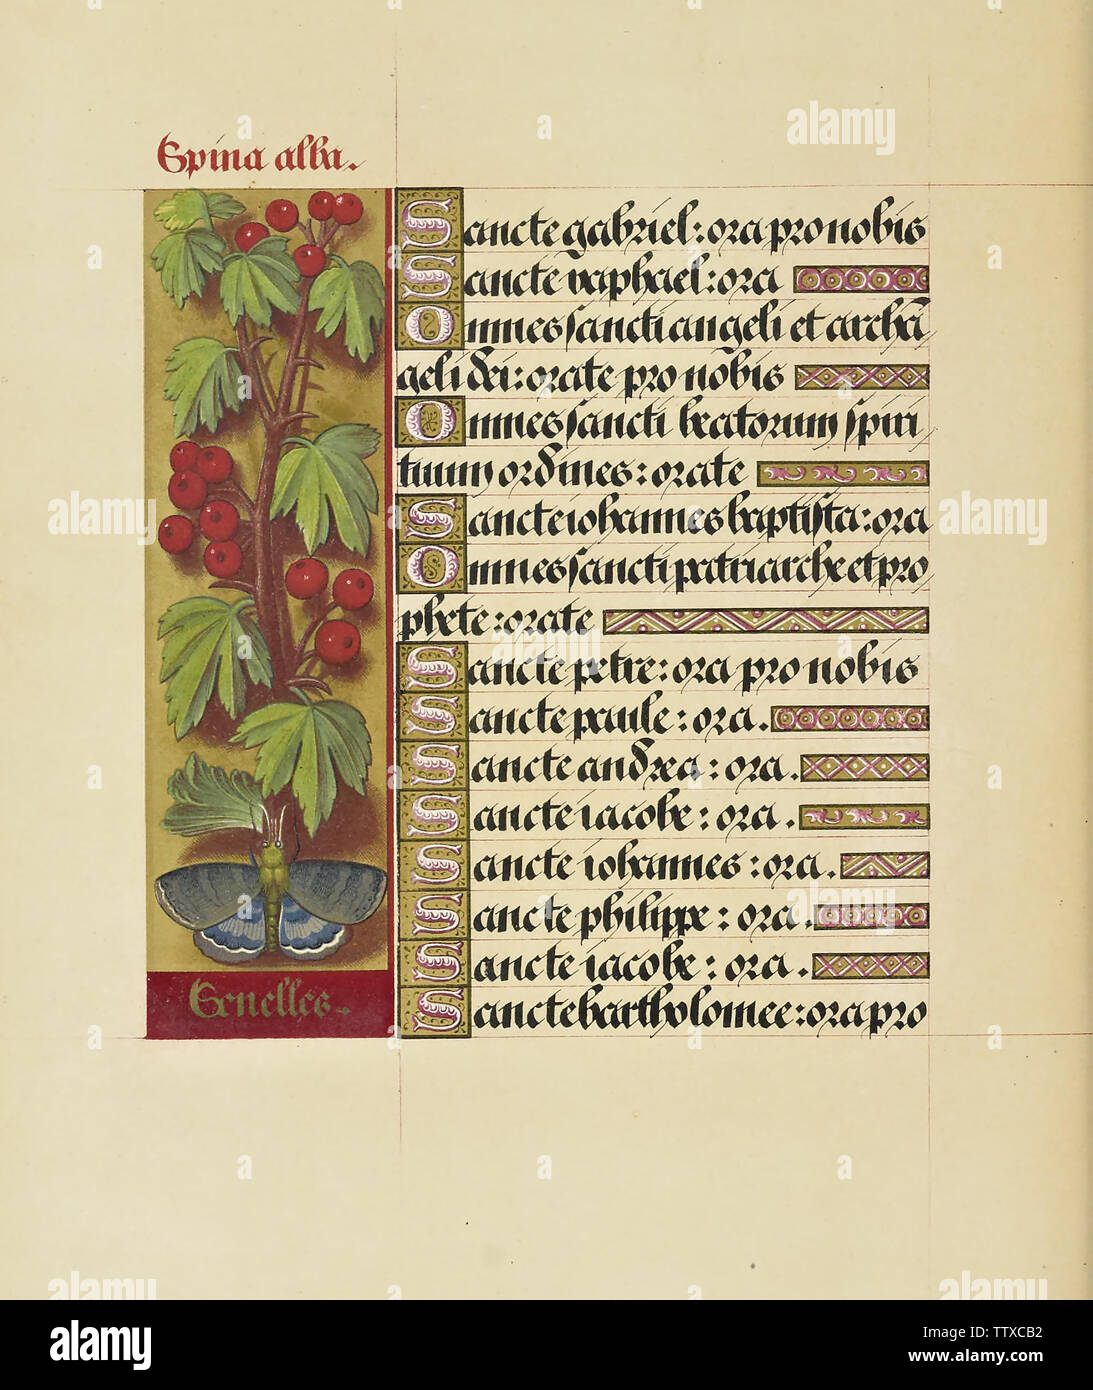 Spina alba.
Sancte gabriel: ora pro nobis
Sancte raphael: ora
Omnes sancti angeli et archā
geli dei: orate pro nobis
Omnes sancti beatorum spiri
tuum ordines: orate
Sancte iohannes baptista: ora
Omnes sancti patriarche et pro
phete: orate
Sancte petre: ora pro nobis
Sancte paule: ora.
Sancte andrea: ora.
Sancte iacobe: ora.
Sancte iohannes: ora.
Sancte philippe: ora.
Sancte iacobe: ora.
Sancte bartholomee: ora pro
Senelles.
alamy
Image ID: TTXCB2
www.alamy.com